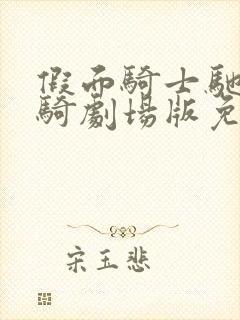 假面騎士馳
騎劇場版免
宋玉悲